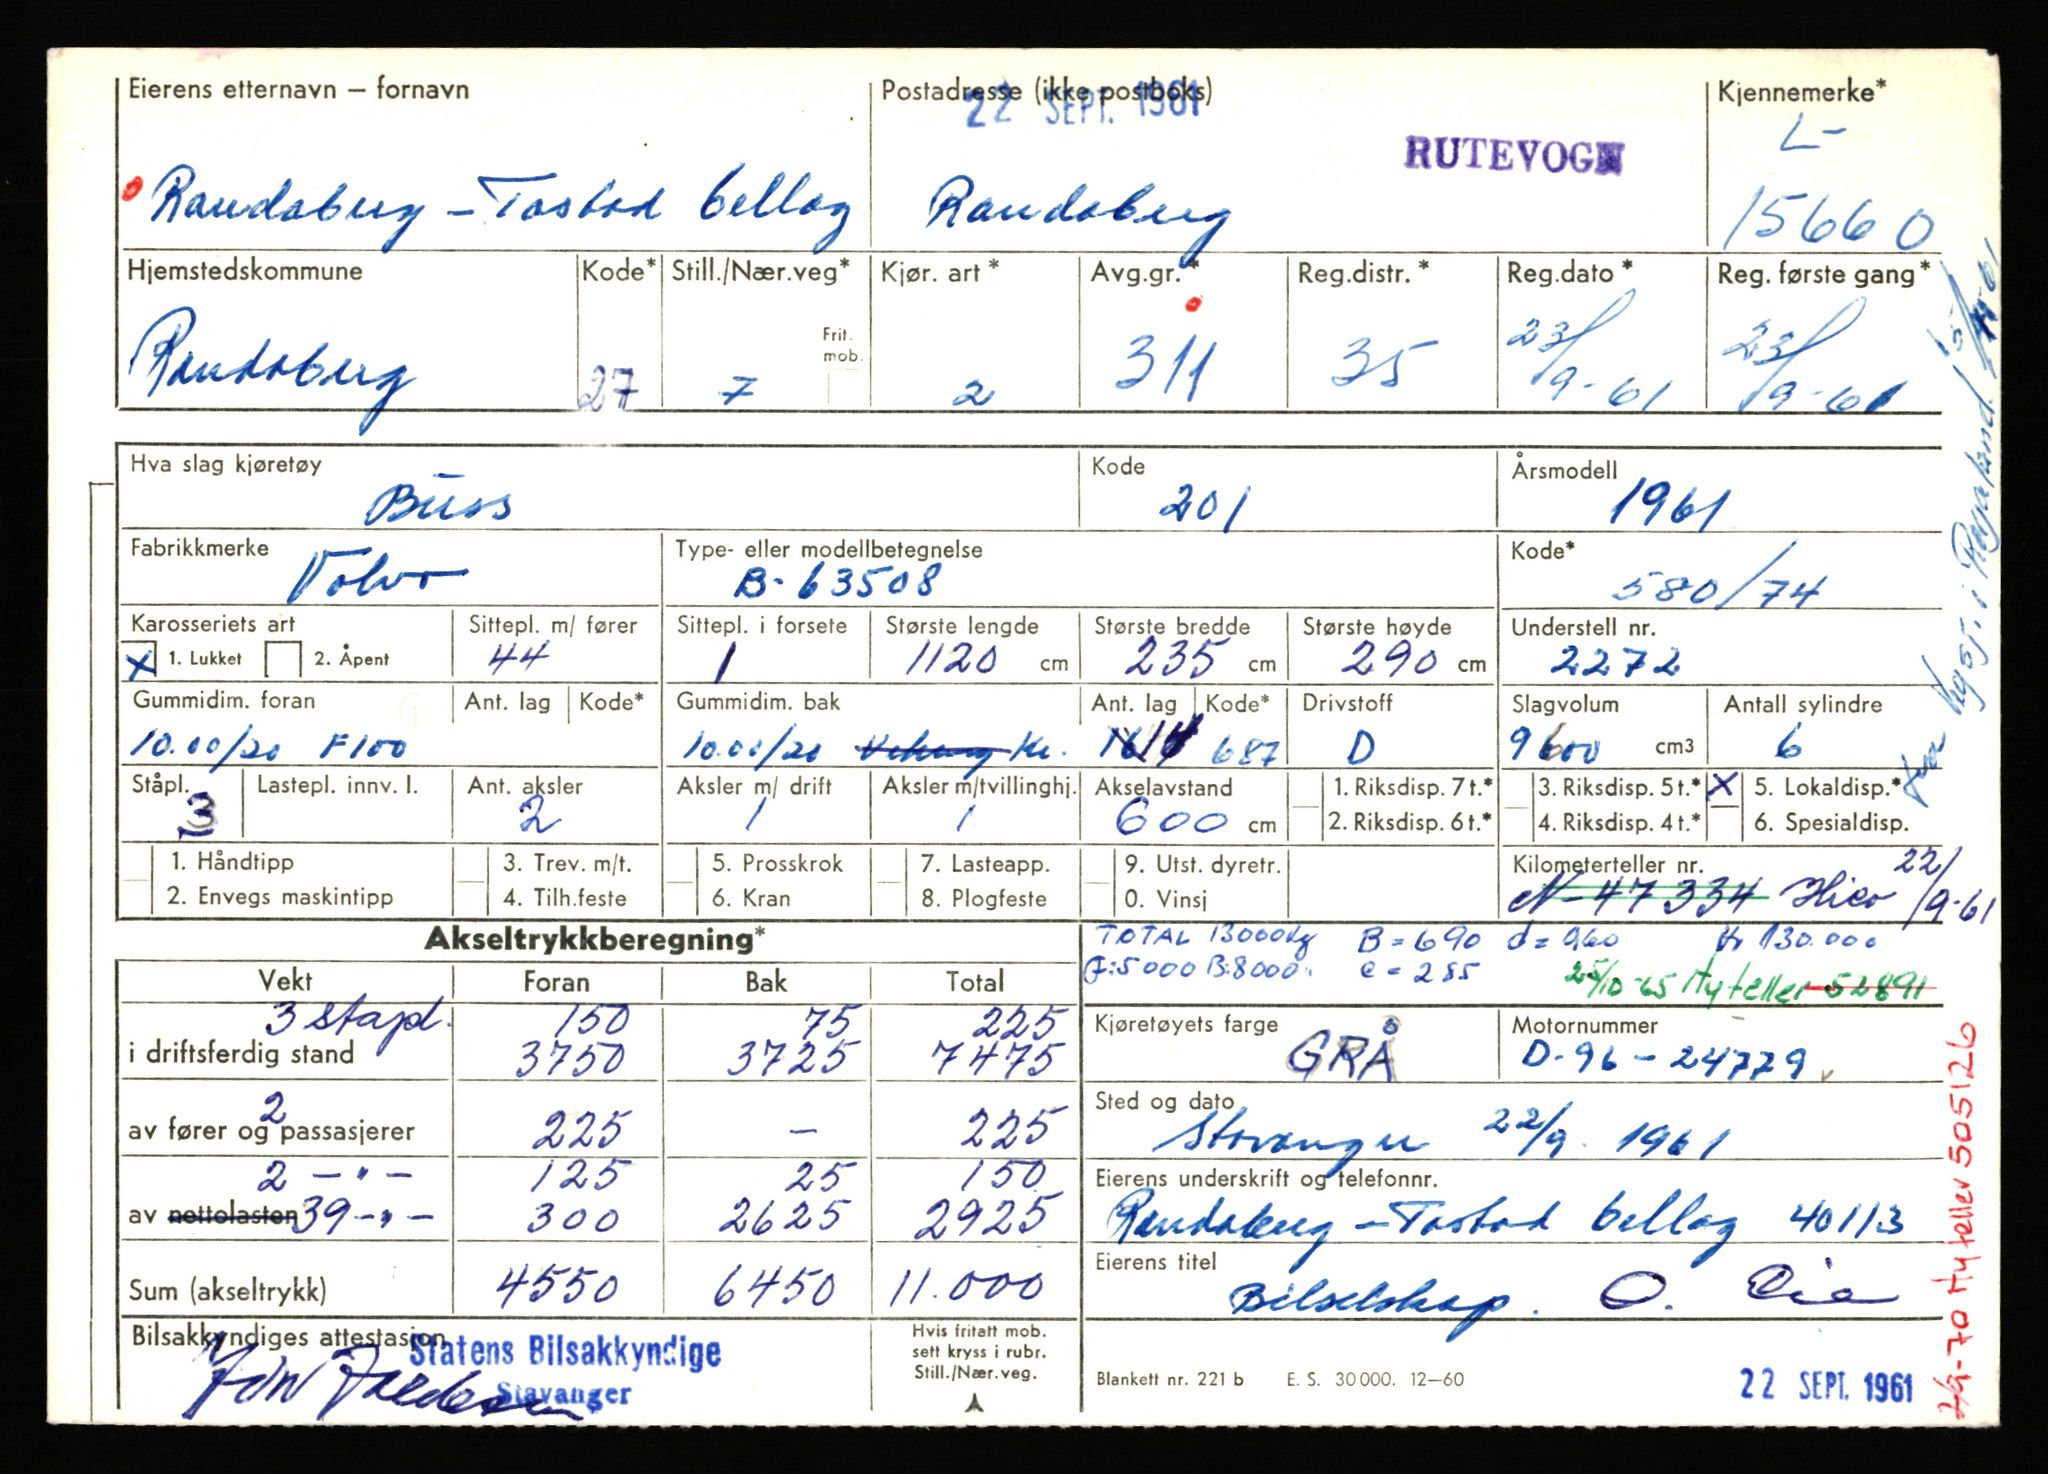 Eierens etternavn – fornavn
Postadresse (ikke postboks)
Kjennemerke*
22 SEPT. 1961
RUTEVOGN
L-
Randaberg – Tastad billag
Randaberg
15660
Hjemstedskommune
Kode*
Still./Nær.veg*
Kjør. art *
Avg.gr.*
Reg.distr. *
Reg.dato *
Reg. første gang*
Randaberg
27
7
Frit. mob.
2
311
35
23/9-61
23/9-61
Hva slag kjøretøy
Buss
Kode
201
Årsmodell
1961
Fabrikkmerke
Volvo
Type- eller modellbetegnelse
B-63508
Kode*
580/74
Karosseriets art
X 1. Lukket
2. Åpent
Sittepl. m/ fører
44
Sittepl. i forsete
1
Største lengde
1120 cm
Største bredde
235 cm
Største høyde
290 cm
Understell nr.
2272
Gummidim. foran
10.00/20 F100
Ant. lag
Kode*
Gummidim. bak
10.00/20
Ant. lag
14
Kode*
687
Drivstoff
D
Slagvolum
9600 cm3
Antall sylindre
6
Ståpl.
3
Lastepl. innv. l.
Ant. aksler
2
Aksler m/ drift
1
Aksler m/tvillinghj.
1
Akselavstand
600 cm
1. Riksdisp. 7 t.*
2. Riksdisp. 6 t.*
3. Riksdisp. 5 t.*
4. Riksdisp. 4 t.*
X 5. Lokaldisp.*
6. Spesialdisp.
1. Håndtipp
2. Envegs maskintipp
3. Trev. m/t.
4. Tilh.feste
5. Prosskrok
6. Kran
7. Lasteapp.
8. Plogfeste
9. Utst. dyretr.
0. Vinsj
Kilometerteller nr.
N-47334 Hico 22/9-61
Akseltrykkberegning*
TOTAL 13000kg B=690 d=060 Kr 130.000
F:5000 B:8000. c=285
25/10-65 Ny teller 52891
Vekt
Foran
Bak
Total
3 ståpl. 150 75 225
i driftsferdig stand 3750 3725 7475
2
av fører og passasjerer 225 – 225
2 –"– 125 25 150
av nettolasten 39 –"– 300 2625 2925
Sum (akseltrykk) 4550 6450 11.000
Kjøretøyets farge
GRÅ
Motornummer
D-96-24779
Sted og dato
Stavanger 22/9. 1961
Eierens underskrift og telefonnr.
Randaberg – Tastad billag 40113
Eierens titel
Bilselskap. O.
Bilsakkyndiges attestasjon
Statens Bilsakkyndige
Stavanger
Hvis fritatt mob.
sett kryss i rubr.
Still./Nær.veg.
Blankett nr. 221 b E. S. 30 000. 12–60
22 SEPT. 1961
-70 Ny teller 505126
i Rogaland